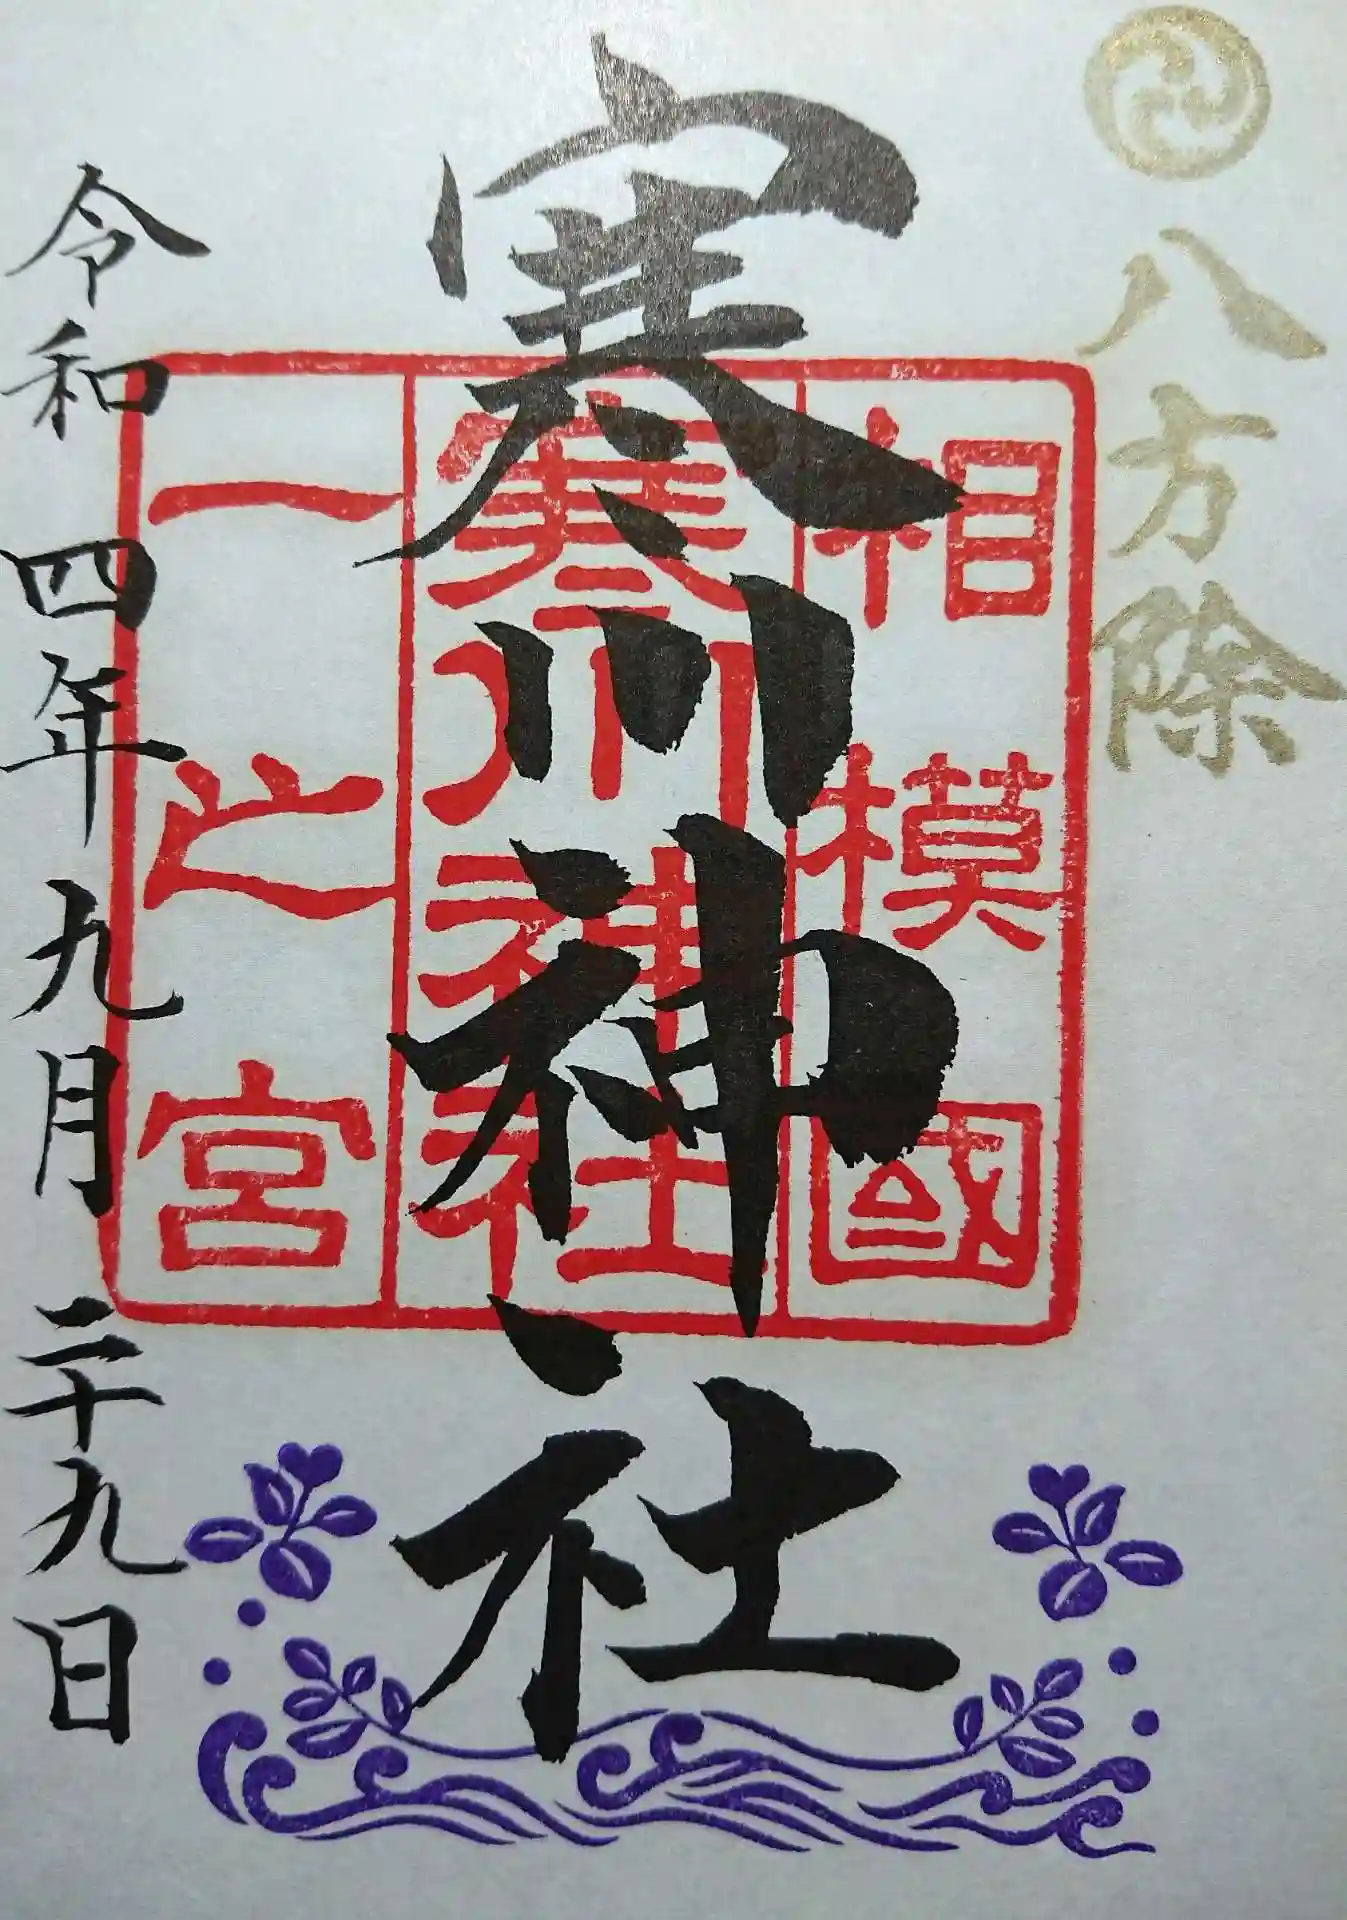 八方除
寒川神社
相模國
寒川神社
一之宮
令和四年九月二十九日